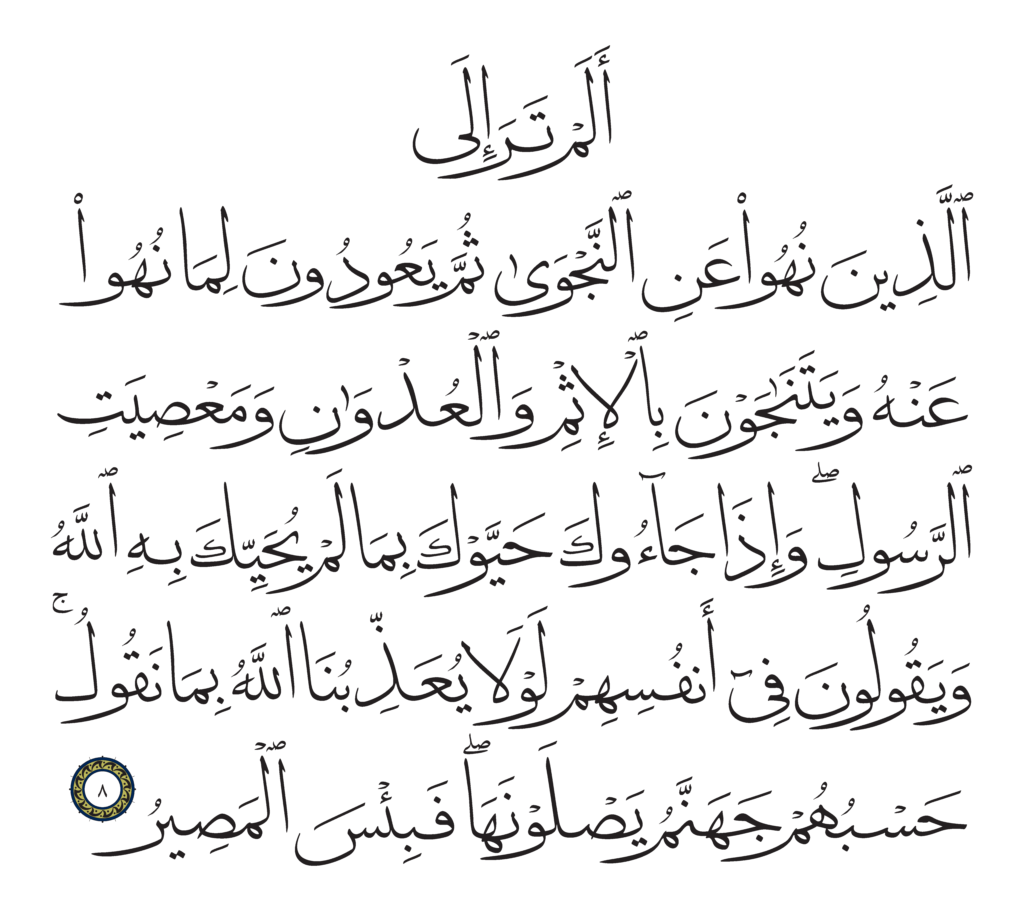 أَلَمْ تَرَ إِلَى
ٱلَّذِينَ نُهُوا۟ عَنِ ٱلنَّجْوَىٰ ثُمَّ يَعُودُونَ لِمَا نُهُوا۟
عَنْهُ وَيَتَنَٰجَوْنَ بِٱلْإِثْمِ وَٱلْعُدْوَٰنِ وَمَعْصِيَتِ
ٱلرَّسُولِۖ وَإِذَا جَآءُوكَ حَيَّوْكَ بِمَا لَمْ يُحَيِّكَ بِهِ ٱللَّهُ
وَيَقُولُونَ فِىٓ أَنفُسِهِمْ لَوْلَا يُعَذِّبُنَا ٱللَّهُ بِمَا نَقُولُۚ
حَسْبُهُمْ جَهَنَّمُ يَصْلَوْنَهَاۖ فَبِئْسَ ٱلْمَصِيرُ ٨